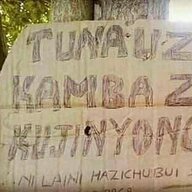 TUNAUZ
KAMBA Z
KUJINYONG
NI LAINI HAZICHUBUI